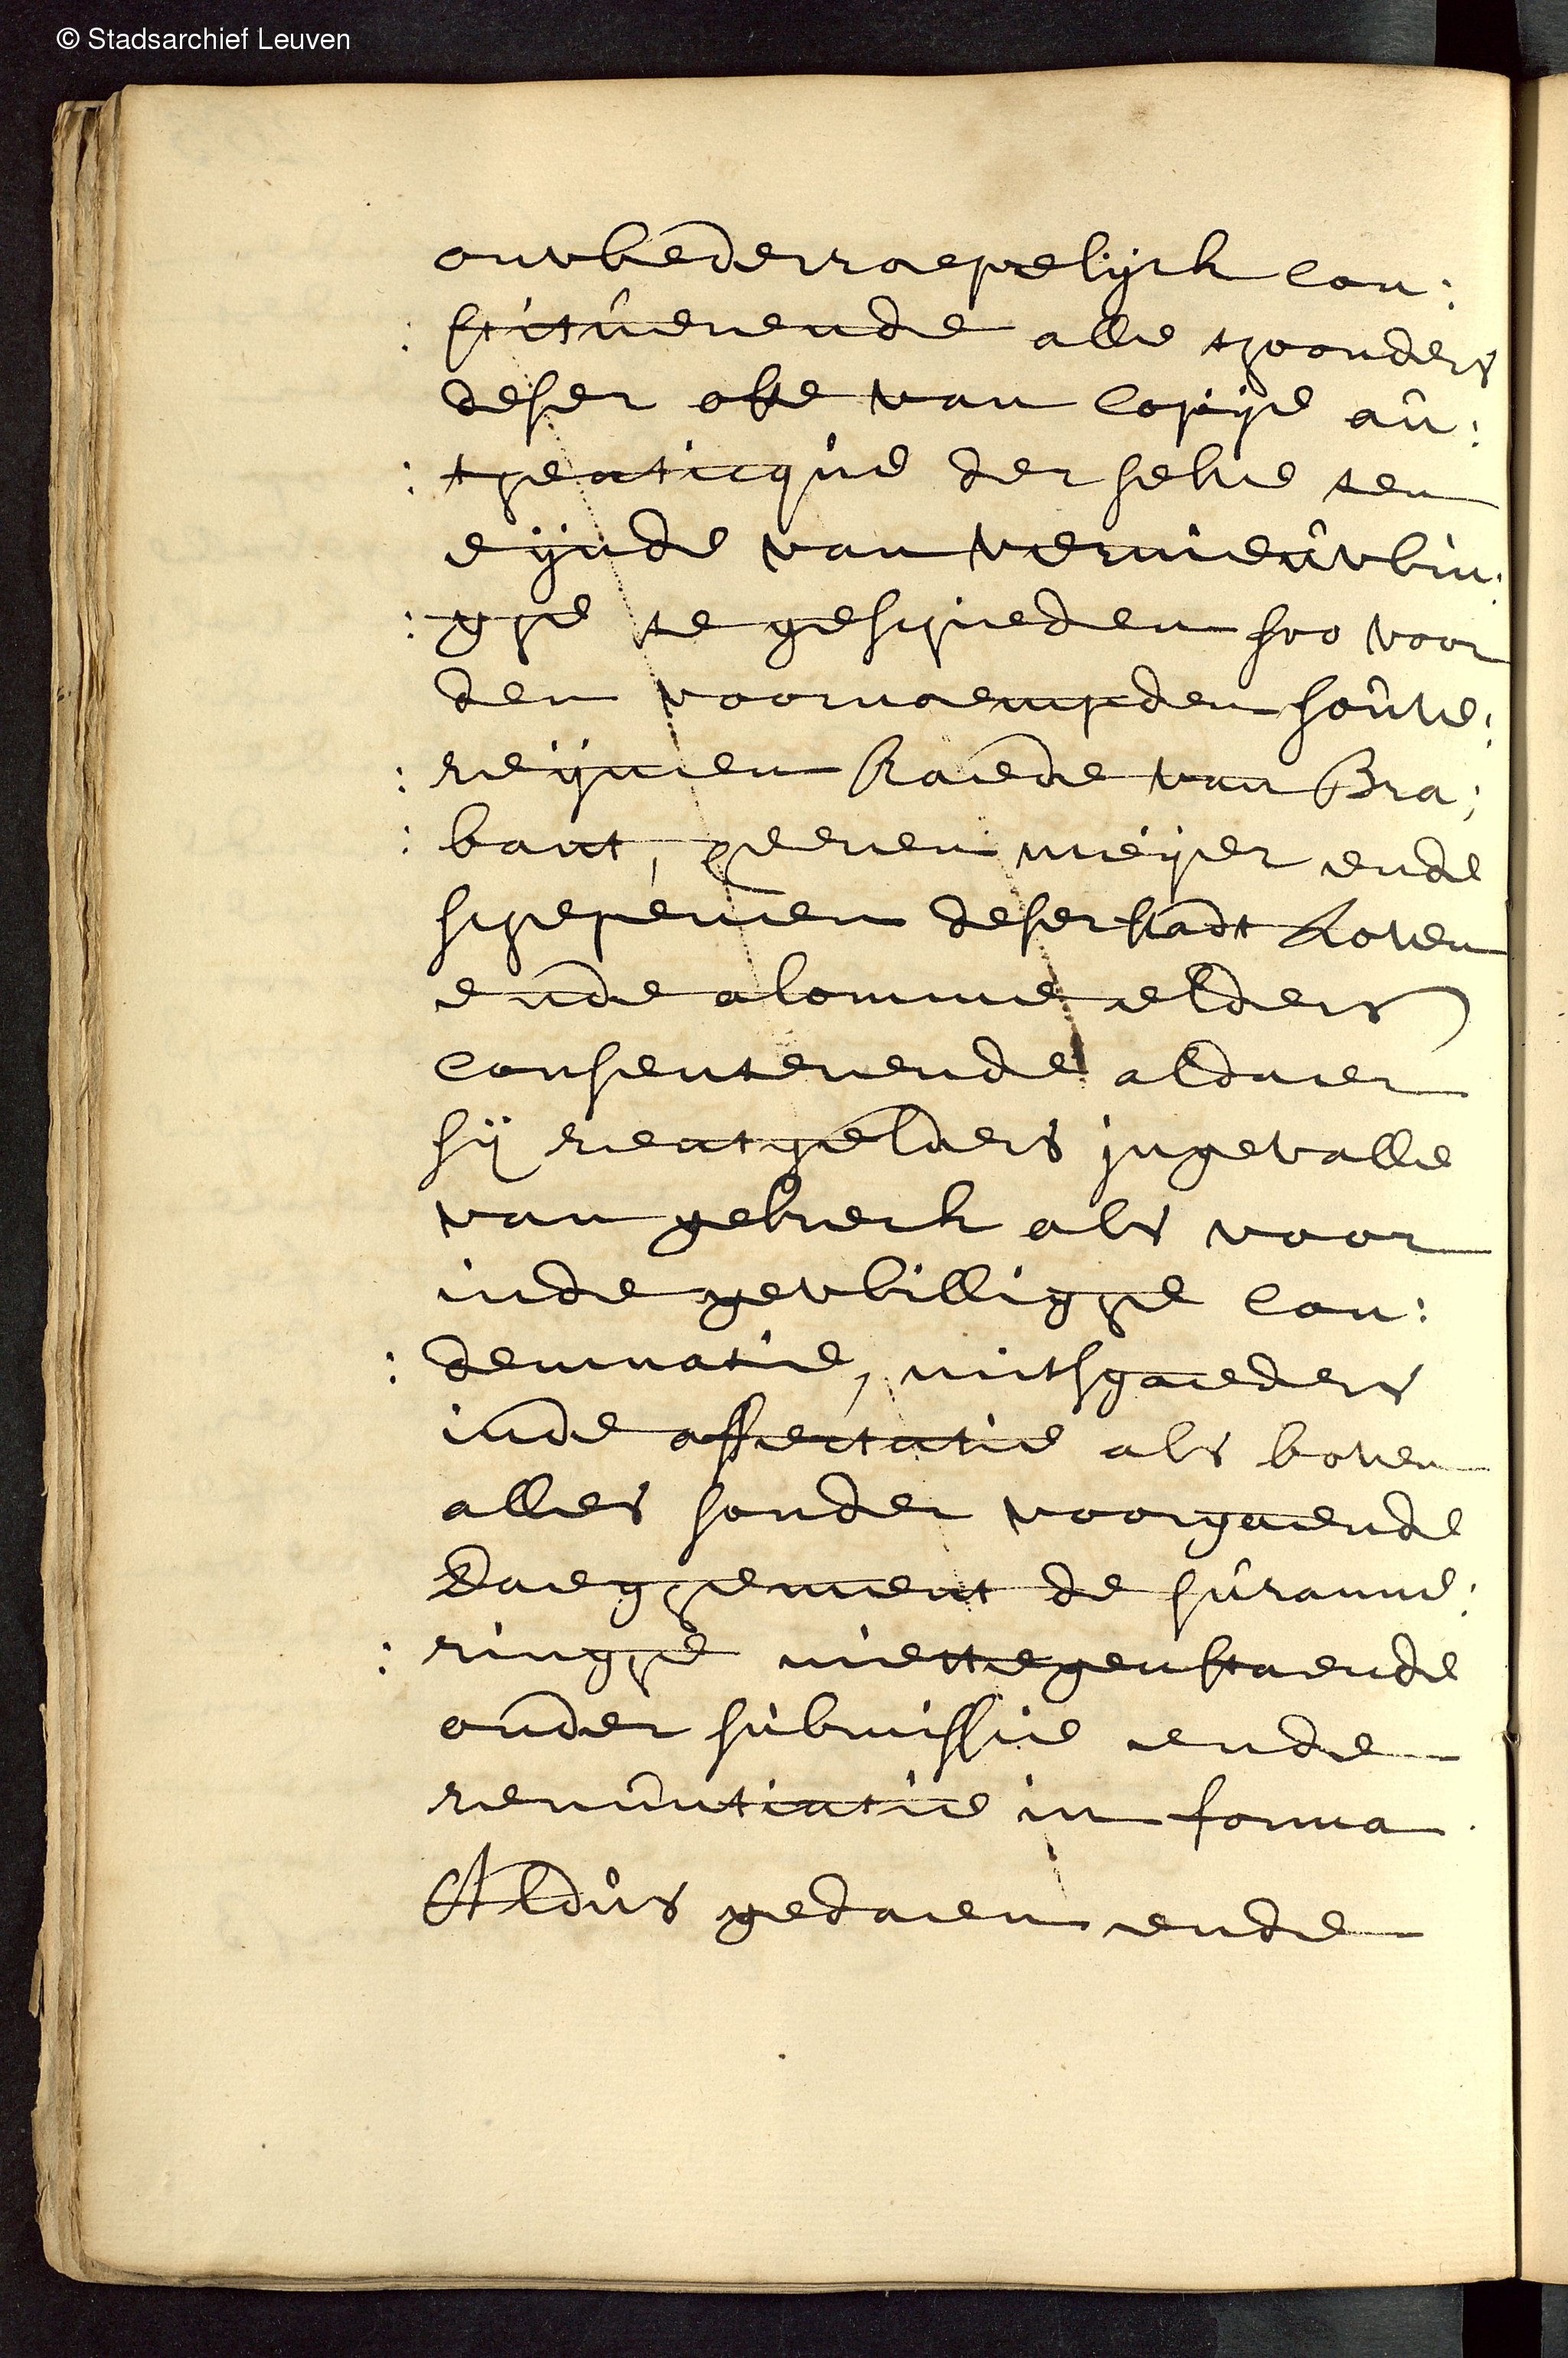 © Stadsarchief Leuven
onwederroepelijck con:
:stituerende alle thoonders
deser ofte van copije au:
:thenticque der selve ten
eijnde van vernieuwin:
:ghe te geschieden soo voor
den voornoempden souve:
:reijnen Raede van Bra:
:bant, heeren meijer ende
schepenen deser stadt Loven
ende alomme elders
consenterende aldaer
sij rentgelders ingevalle
van gebreck als voor
inde gewillighe con:
:demnatie, mitsgaeders
inde affectatie als boven
alles sonder voorgaende
Daeghement de suranne:
:ringhe niettegenstaende
onder submissie ende
renuntiatie in forma
Aldus gedaen ende